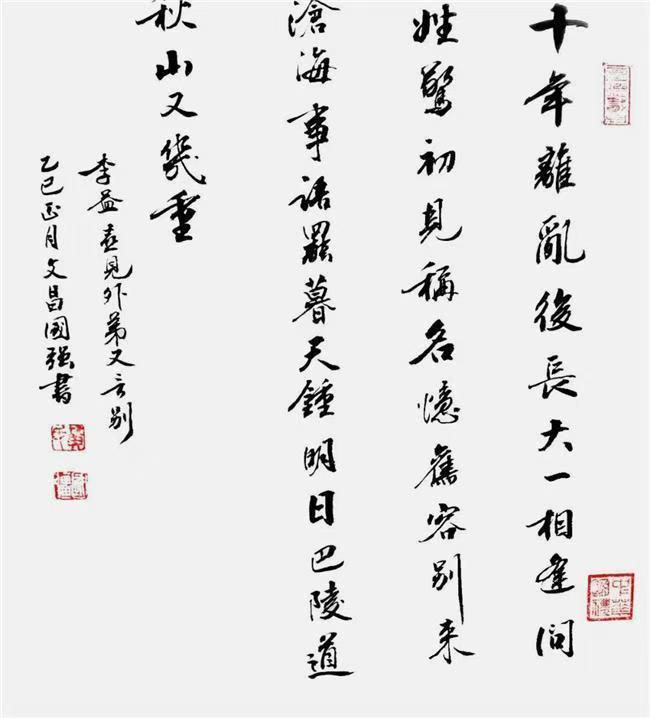 十年離亂後長大一相逢問
姓驚初見稱名憶舊容別来
滄海事語罷暮天鍾明日巴陵道
秋山又幾重
李益喜見外弟又言别
乙巳正月文昌國强書